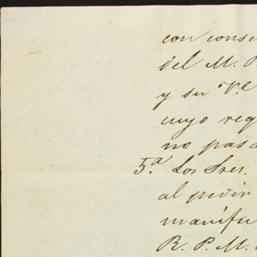 con conse
del M. R
y su Ve.
cuyo req
no pasa
5.a Los Sres.
al pedir
manifes
R. P. M.